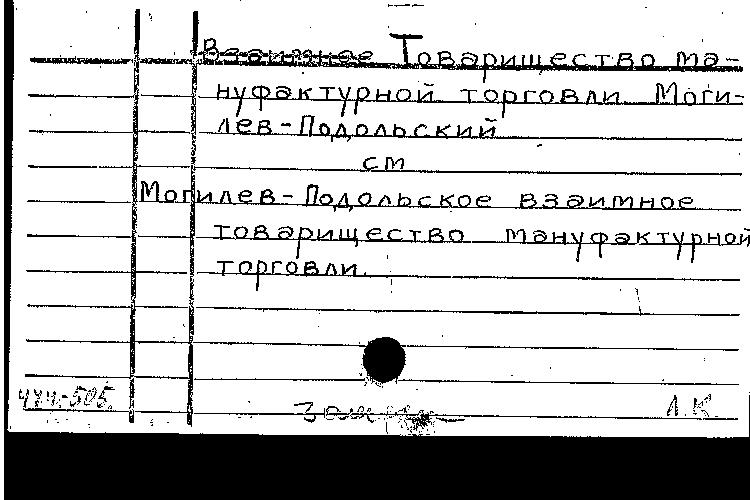 Взаимное Товарищество ма-
нуфактурной торговли. Моги-
лев-Подольский
см
Могилев-Подольское взаимное
товарищество мануфактурной
торговли.
Л.К.